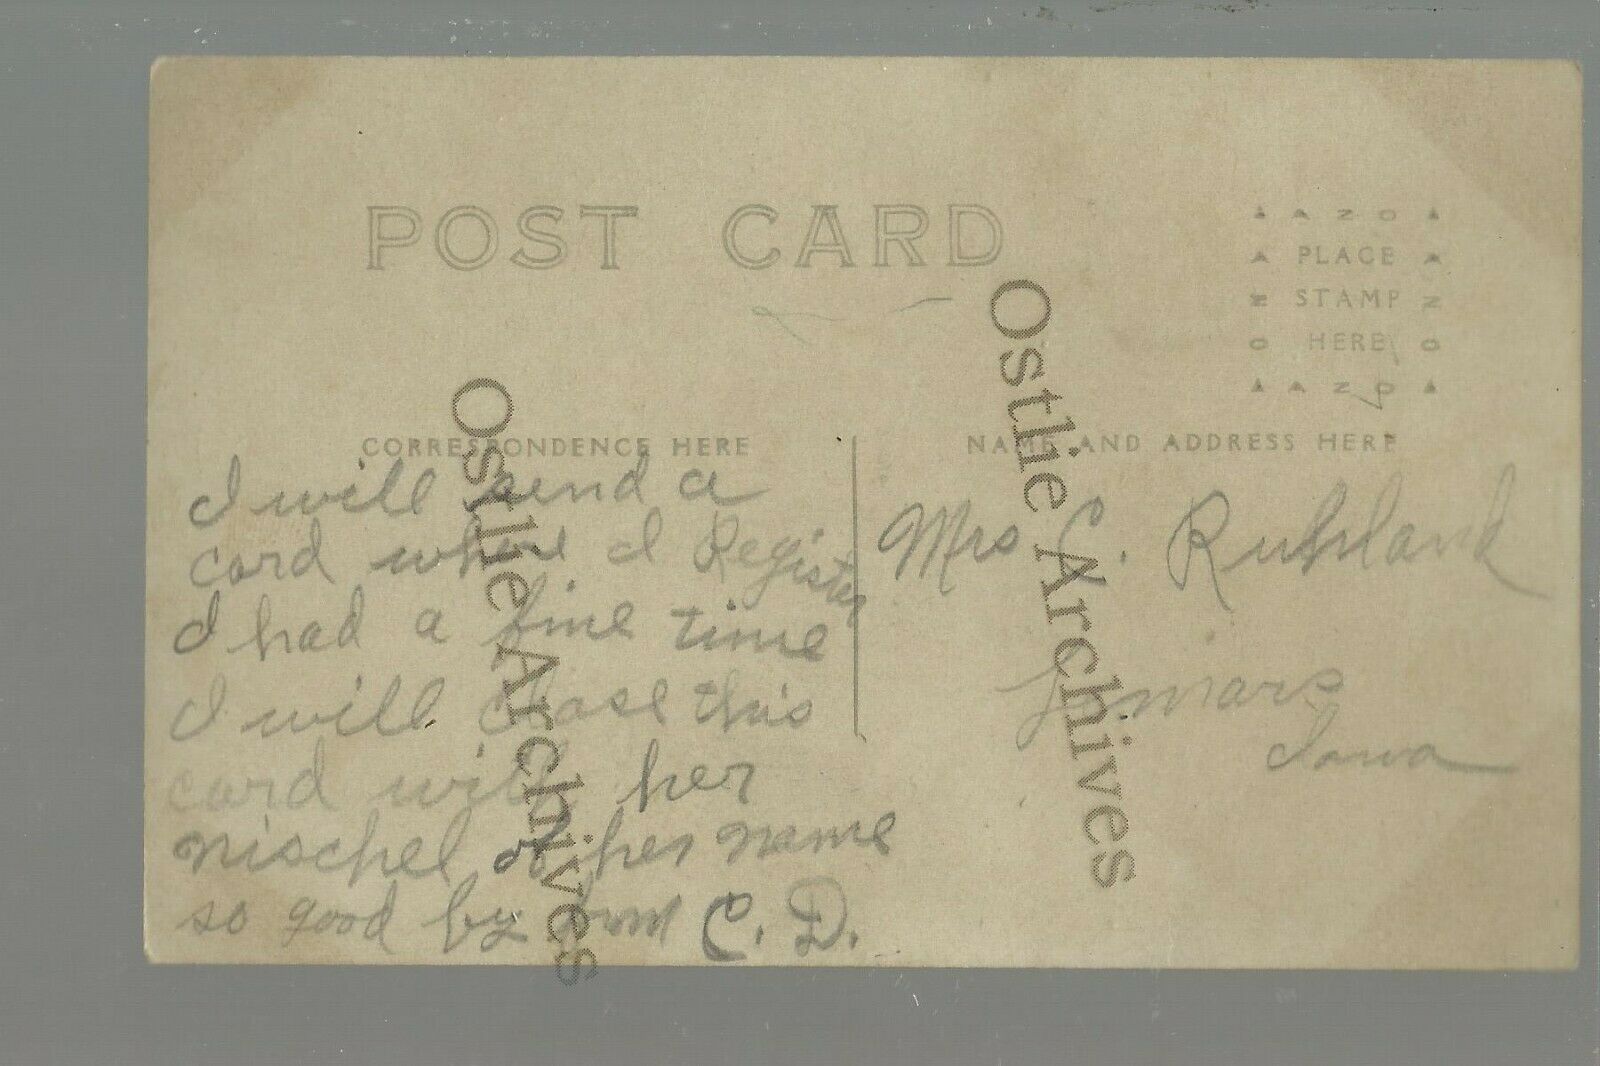 POST CARD
AZO
PLACE
STAMP
HERE
AZO
CORRESPONDENCE HERE
I will send a
card where I Register
I had a fine time
I will close this
card with her
nischel of her name
so good by from C. D.
NAME AND ADDRESS HERE
Mrs C. Ruhland
Lemars
Iowa
Ostlie Archives
Ostlie Archives